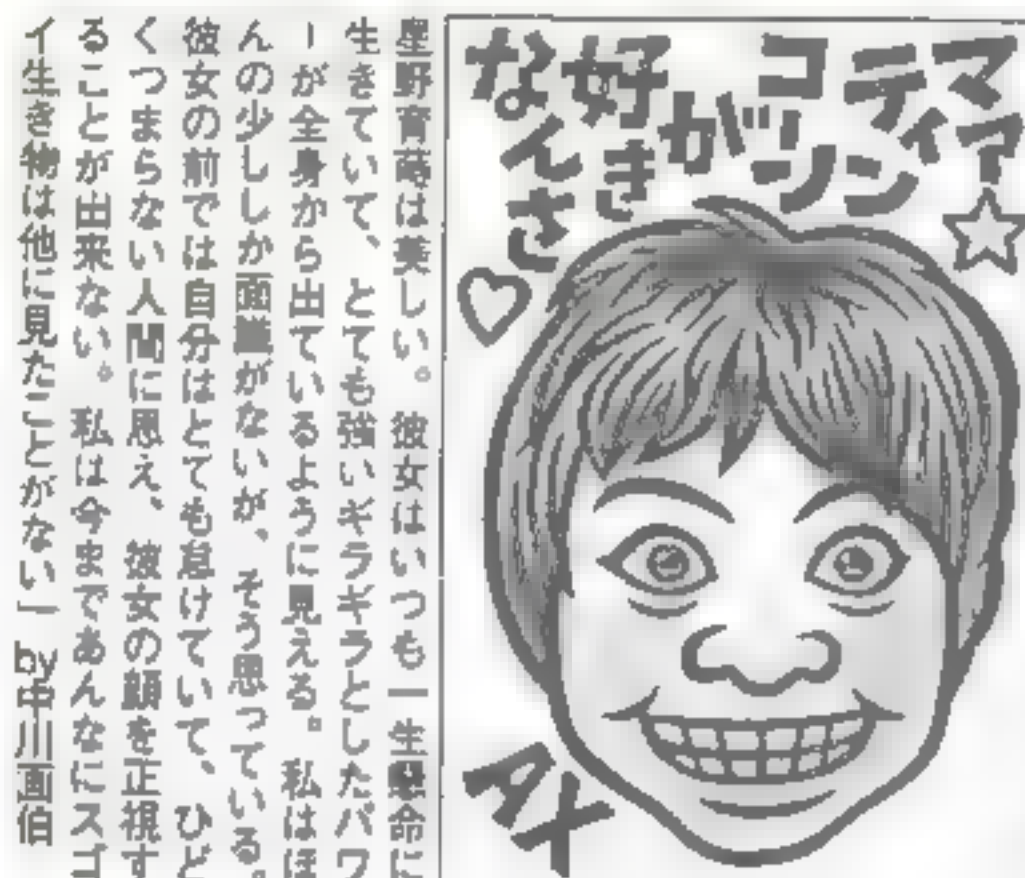 マァ☆
ティン
コーン
が
好き
なんさ♡
AX
星野育蒔は美しい。彼女はいつも一生懸命に
生きていて、とても強いギラギラとしたパワ
ーが全身から出ているように見える。私はほ
んの少ししか面識がないが、そう思っている。
彼女の前では自分はとても怠けていて、ひど
くつまらない人間に思え、彼女の顔を正視す
ることが出来ない。私は今まであんなにスゴ
イ生き物は他に見たことがない」by中川画伯